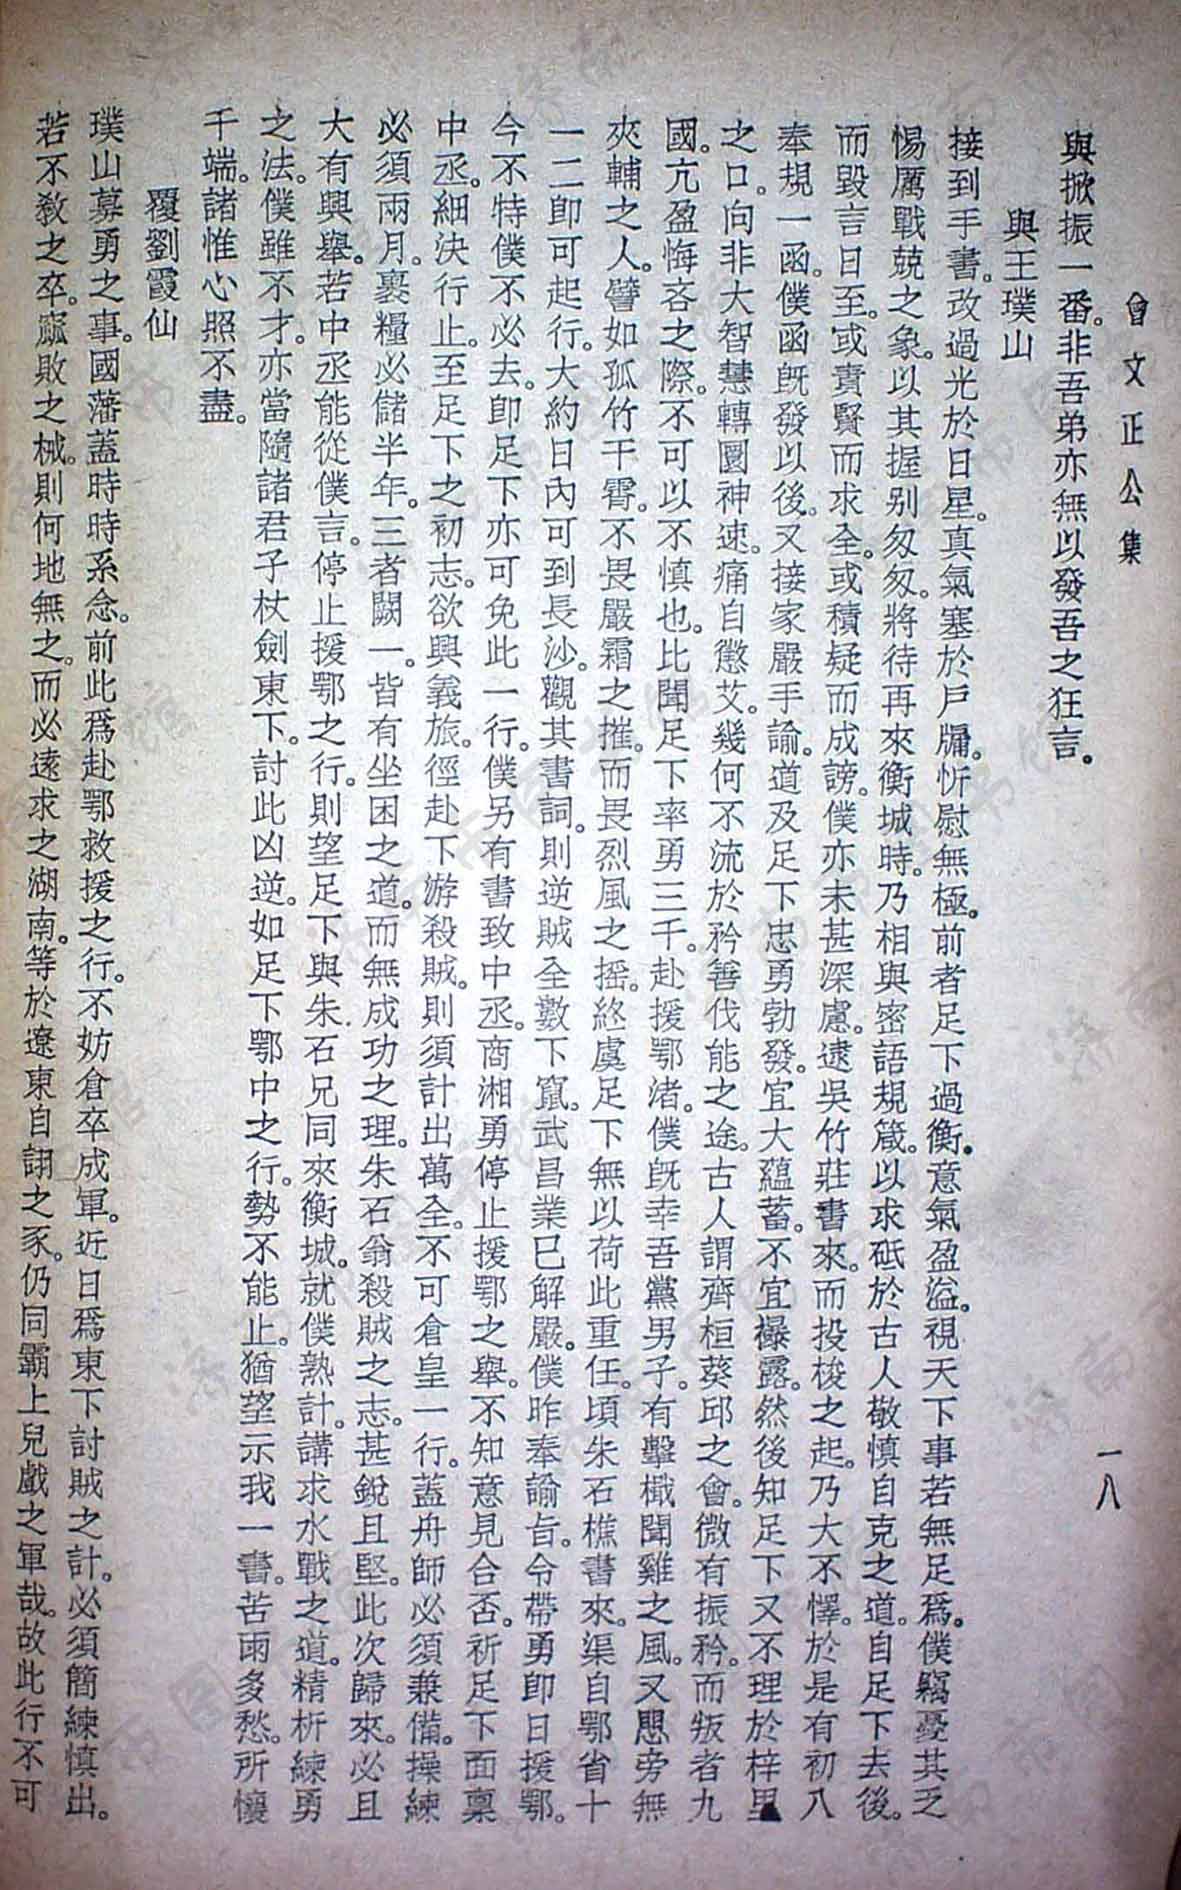 曾文正公集
一八
與掀振一番。非吾弟亦無以發吾之狂言。
與王璞山
接到手書。改過光於日星。真氣塞於戶牖。忻慰無極。前者足下過衡。意氣盈溢。視天下事若無足爲。僕竊憂其乏
惕厲戰兢之象。以其握别匆匆。將待再來衡城時。乃相與密語規箴。以求砥於古人敬慎自克之道。自足下去後。
而毀言日至。或責賢而求全。或積疑而成謗。僕亦未甚深慮。逮吳竹莊書來。而投梭之起。乃大不懌。於是有初八
奉規一函。僕函旣發以後。又接家嚴手諭。道及足下忠勇勃發。宜大蘊蓄。不宜襮露。然後知足下又不理於梓里
之口。向非大智慧轉圜神速。痛自懲艾。幾何不流於矜善伐能之途。古人謂齊桓葵邱之會。微有振矜。而叛者九
國。亢盈悔吝之際。不可以不慎也。比聞足下率勇三千。赴援鄂渚。僕旣幸吾黨男子。有擊檝聞雞之風。又思旁無
夾輔之人。譬如孤竹干霄。不畏嚴霜之摧。而畏烈風之搖。終虞足下無以荷此重任。頃朱石樵書來。渠自鄂省十
一二卽可起行。大約日內可到長沙。觀其書詞。則逆賊全數下竄。武昌業已解嚴。僕昨奉諭旨。令帶勇卽日援鄂。
今不特僕不必去。卽足下亦可免此一行。僕另有書致中丞。商湘勇停止援鄂之舉。不知意見合否。祈足下面稟
中丞。細決行止。至足下之初志。欲興義旅。徑赴下游殺賊。則須計出萬全。不可倉皇一行。蓋舟師必須兼備。操練
必須兩月。裹糧必儲半年。三者闕一。皆有坐困之道。而無成功之理。朱石翁殺賊之志。甚銳且堅。此次歸來。必且
大有興舉。若中丞能從僕言。停止援鄂之行。則望足下與朱石兄同來衡城。就僕熟計。講求水戰之道。精析練勇
之法。僕雖不才。亦當隨諸君子杖劍東下。討此凶逆。如足下鄂中之行。勢不能止。猶望示我一書。苦雨多愁。所懷
千端。諸惟心照不盡。
覆劉霞仙
璞山募勇之事。國藩蓋時時系念。前此爲赴鄂救援之行。不妨倉卒成軍。近日爲東下討賊之計。必須簡練慎出。
若不敎之卒。窳敗之械。則何地無之。而必遠求之湖南。等於遼東自詡之豕。仍同霸上兒戲之軍哉。故此行不可